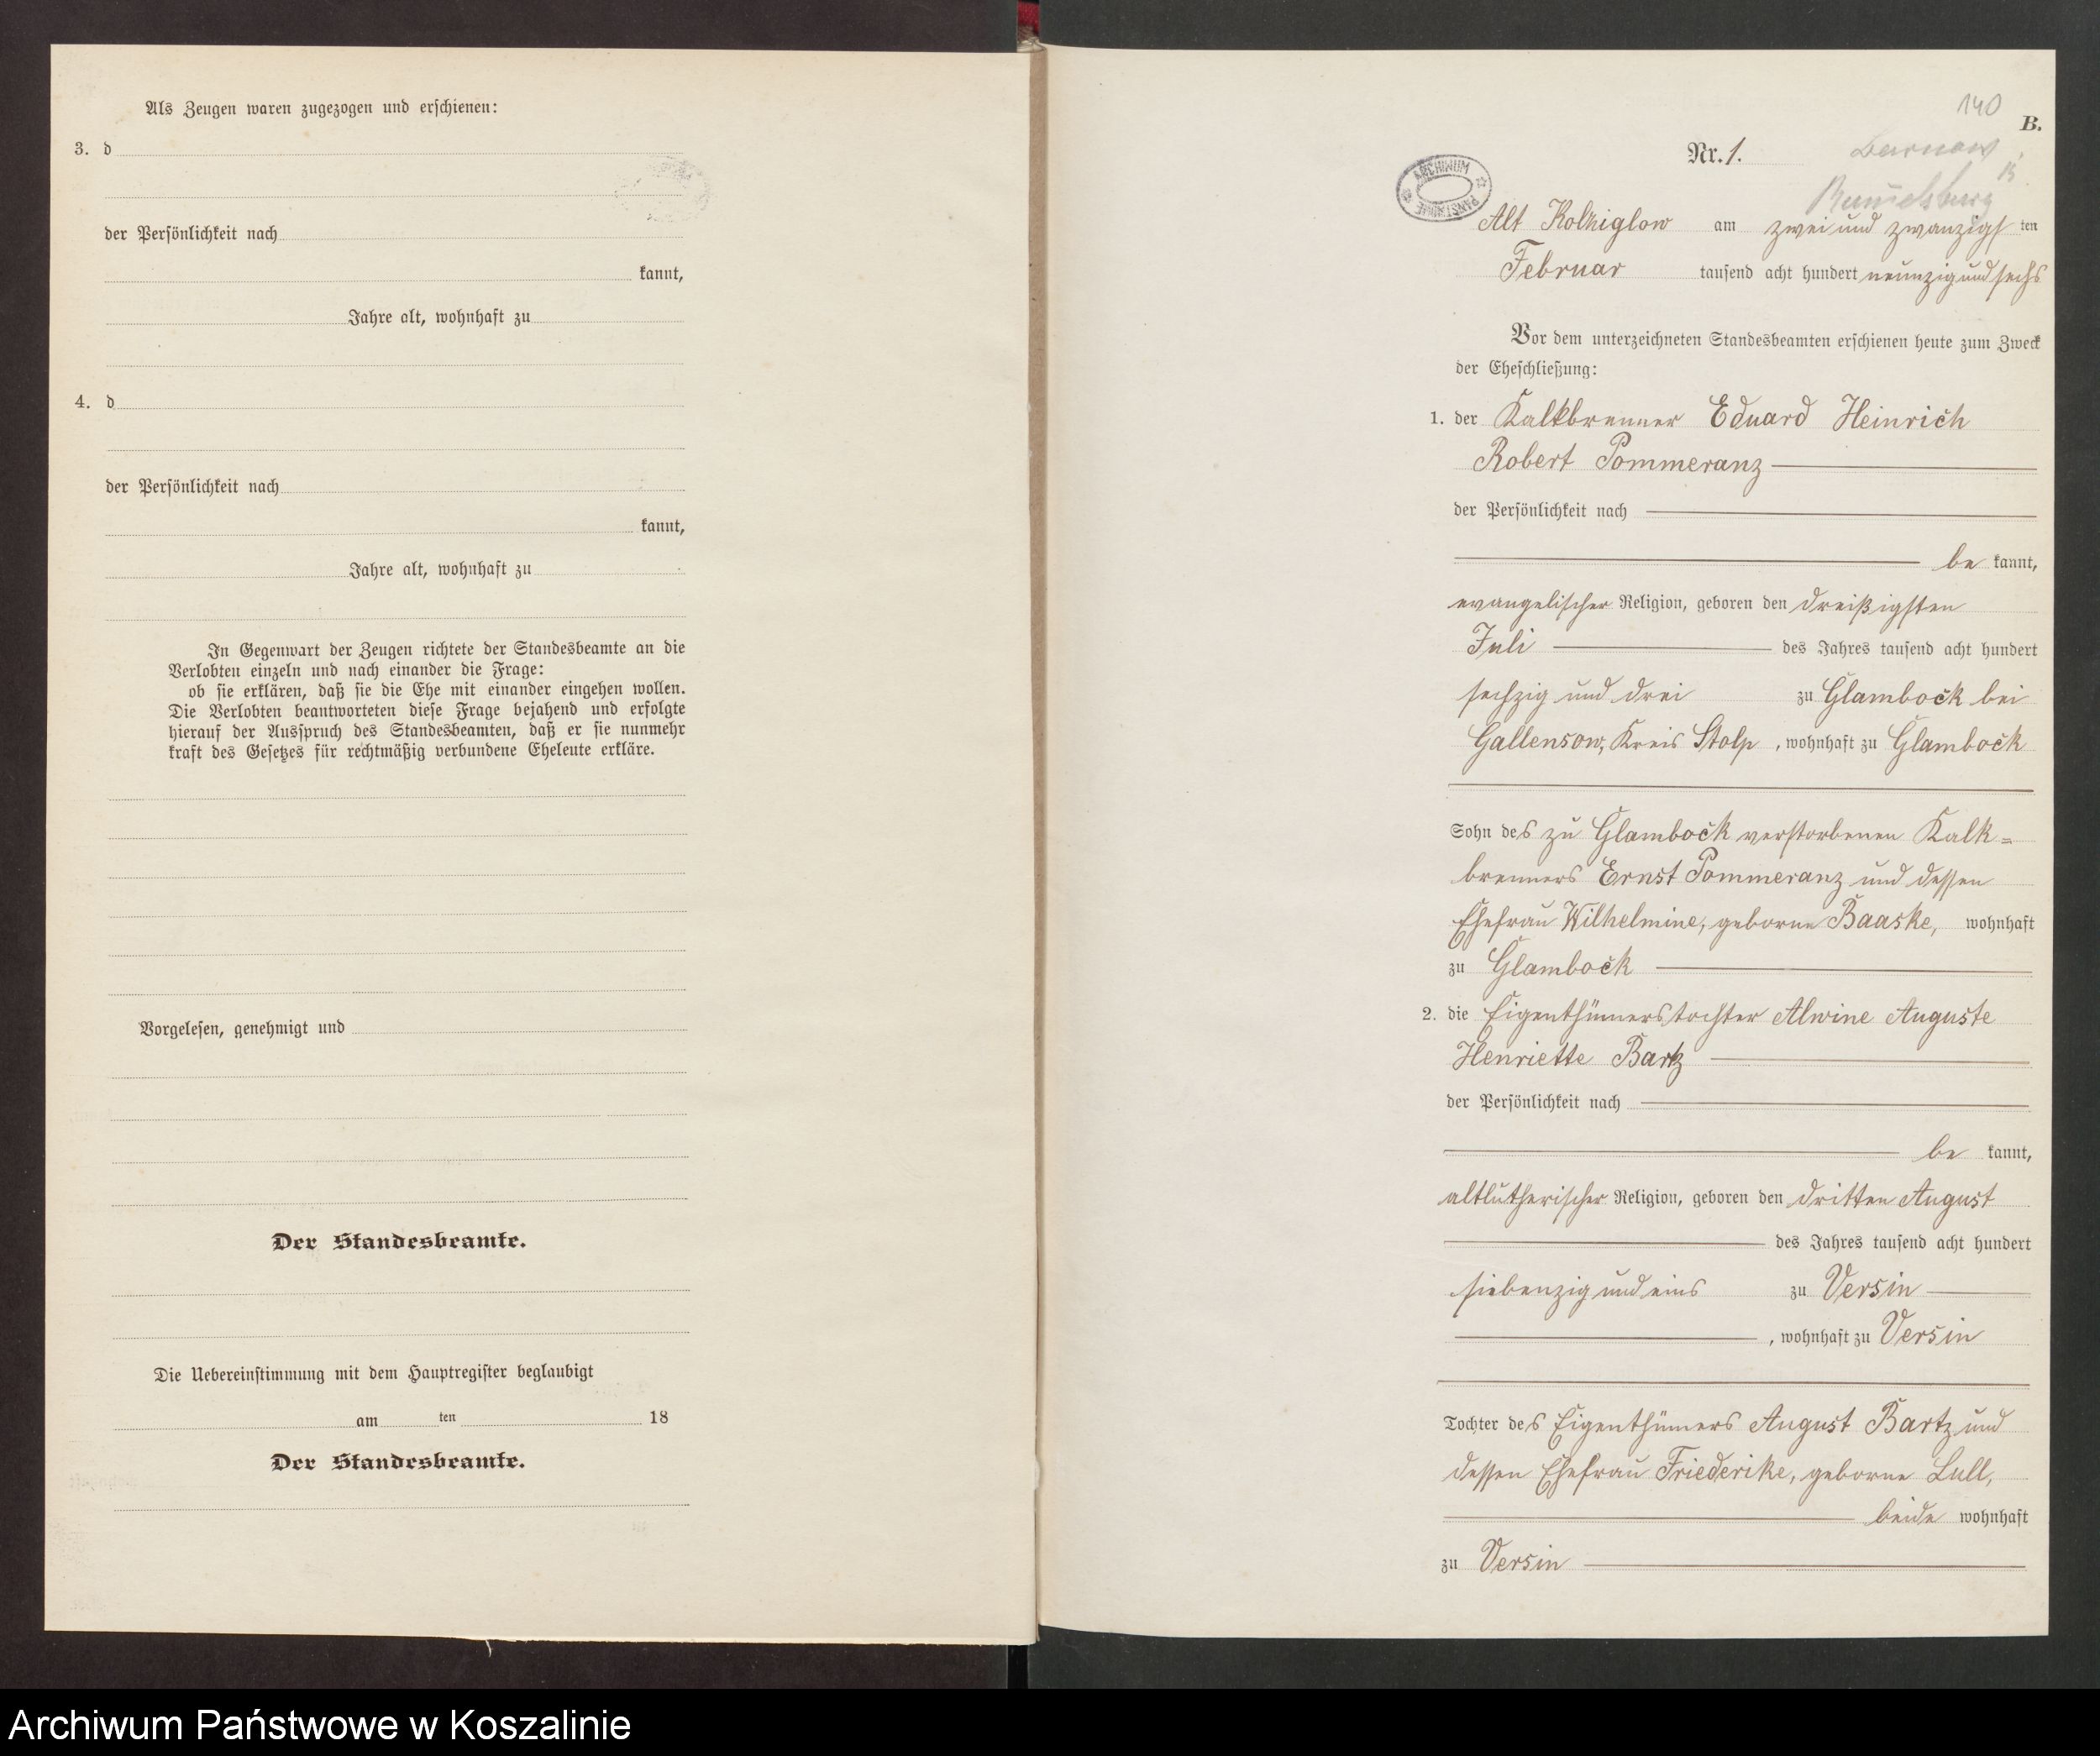 Als Zeugen waren zugezogen und erschienen:
3. d
der Persönlichkeit nach
kannt,
Jahre alt, wohnhaft zu
4. d
der Persönlichkeit nach
kannt,
Jahre alt, wohnhaft zu
In Gegenwart der Zeugen richtete der Standesbeamte an die
Verlobten einzeln und nach einander die Frage:
ob sie erklären, daß sie die Ehe mit einander eingehen wollen.
Die Verlobten beantworteten diese Frage bejahend und erfolgte
hierauf der Ausspruch des Standesbeamten, daß er sie nunmehr
kraft des Gesetzes für rechtmäßig verbundene Eheleute erkläre.
Vorgelesen, genehmigt und
Der Standesbeamte.
Die Uebereinstimmung mit dem Hauptregister beglaubigt
am ten 18
Der Standesbeamte.
140
B.
Nr. 1.
Barnow
Rummelsburg
ARCHIWUM PAŃSTWOWE
Alt Kolziglow am zwei und zwanzigs ten
Februar tausend acht hundert neunzig und sechs
Vor dem unterzeichneten Standesbeamten erschienen heute zum Zweck
der Eheschließung:
1. der Kalkbrenner Eduard Heinrich
Robert Pommeranz
der Persönlichkeit nach
be kannt,
evangelischer Religion, geboren den dreißigsten
Juli des Jahres tausend acht hundert
sechzig und drei zu Glambock bei
Gallensow, Kreis Stolp, wohnhaft zu Glambock
Sohn des zu Glambock verstorbenen Kalk=
brenners Ernst Pommeranz und dessen
Ehefrau Wilhelmine, geborne Baaske, wohnhaft
zu Glambock
2. die Eigenthümerstochter Alwine Auguste
Henriette Bartz
der Persönlichkeit nach
be kannt,
altlutherischer Religion, geboren den dritten August
des Jahres tausend acht hundert
siebenzig und eins zu Versin
, wohnhaft zu Versin
Tochter des Eigenthümers August Bartz und
dessen Ehefrau Friederike, geborne Lull,
beide wohnhaft
zu Versin
Archiwum Państwowe w Koszalinie